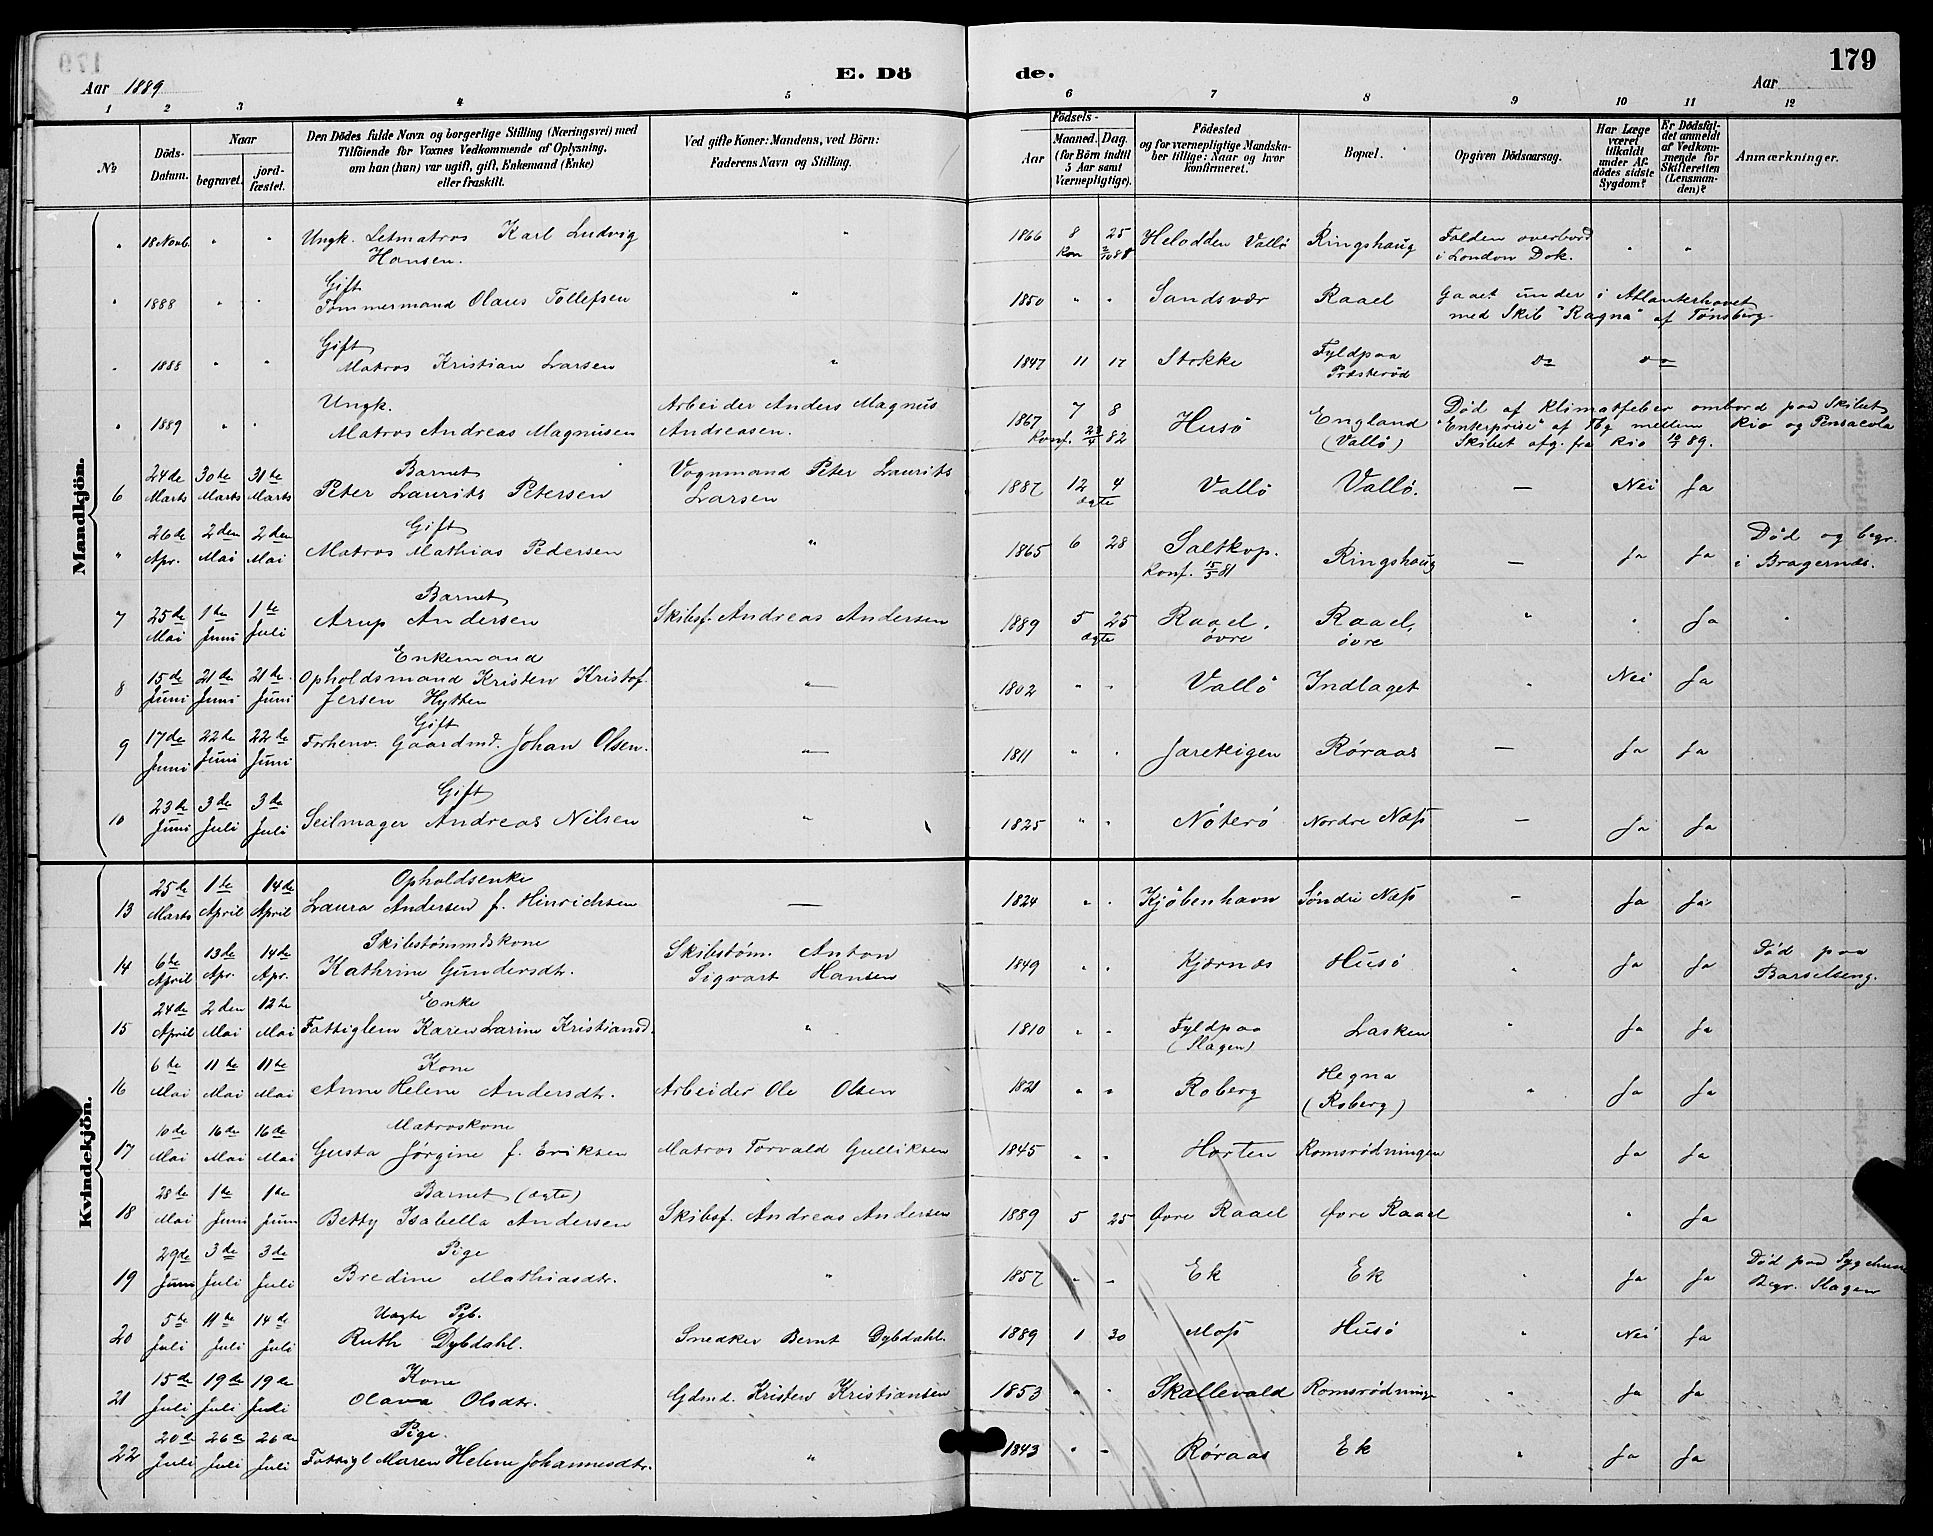 179
Aar 1889
E. Dö
de.
Aar
1 2 3 4 5 6 7 8 9 10 11 12
No
Döds-
Datum.
Naar
begravet.
jord-
fæstet.
Den Dödes fulde Navn og borgerlige Stilling (Næringsvei) med
Tilföiende for Voxnes Vedkommende af Oplysning,
om han (hun) var ugift, gift, Enkemand (Enke)
eller fraskilt.
Ved gifte Koner: Mandens, ved Börn:
Faderens Navn og Stilling.
Födsels-
Aar
Maaned. Dag.
(for Börn indtil
5 Aar samt
Værnepligtige).
Födested
og for værnepligtige Mandska-
ber tillige: Naar og hvor
konfirmeret.
Bopæl.
Opgiven Dödsaarsag.
Har Læge
været
tilkaldt
under Af-
dödes sidste
Sygdom?
Er Dödsfal-
det anmeldt
af Vedkom-
mende for
Skifteretten
(Lensman-
den)?
Anmærkninger.
Mandkjön.
" 18 Novb. " " Ungk. Letmatros Karl Ludvig " 1866 8 25 Helodden Vallö Ringshaug Falden overbord " "
Hansen. Kon 2/10 88 i London Dok.
Gift
" 1888 " " Tømmermand Olaus Tollefsen " 1850 " " Sandsvær Raael Gaaet under i Atlanterhavet
med Skib "Ragna" af Tønsberg.
Gift
" 1888 " " Matros Kristian Larsen " 1847 11 17 Stokke Fyldpaa do do
Præsterød
Ungk. Arbeider Anders Magnus 7 8 Død af Klimatfeber ombord paa Skibet
" 1889 " " Matros Andreas Magnusen Andreasen. 1867 Husö England "Enterprise" af Tbg mellem Rio og Pensacola
Konf. 23/4 82 (Vallö) Skibet afg. fra Rio 10/1 89.
24de 30te 31te Barnet Vognmand Peter Laurits
6 Marts Marts Marts Peter Laurits Petersen Larsen 1887 12 4 Vallö Vallö. — Nei Ja
ægte
26de 2den 2den Gift Død og begr.
" Apr. Mai Mai Matros Mathias Pedersen " 1865 6 28 Saltkop. Ringshaug — Ja Ja i Bragernæs.
Konf. 15/5 81
Barnet
7 25de 1te 1te Arup Andersen Skibsf. Andreas Andersen 1889 5 25 Raael. Raael, " " Ja "
Mai Juni Juli ægte øvre øvre
Enkemand
8 15de 21de 21de Opholdsmand Kristen Kristof- "— 1802 " " Vallö Indlaget " Nei Ja
Juni Juni Juni fersen Hytten
Gift
9 17de 22de 22de Forhenv. Gaardmd. Johan Olsen. "— 1811 " " Jareteigen Røraas — Ja Ja
Juni Juni Juni
Gift
10 23de 3de 3de Seilmager Andreas Nilsen " 1825 " " Nöterö Nordre Næss — Ja Ja
Juni Juli Juli
Kvindekjön.
25de 1te 14de Opholdsenke
13 Marts April April Laura Andersen f. Hinrichsen — 1824 " " Kjöbenhavn Søndre Næss — Ja Ja
6te 13de 14de Skibstømmdskone Skibstøm. Anton Død paa
14 April Apr. Apr. Kathrine Gundersdtr. Sigvart Hansen 1849 " " Kjærnæs Husö " Ja Ja Barselseng.
24de 2den 12te Enke
15 April Mai Mai Fattiglem Karen Larine Kristiansd. " 1810 " " Fyldpaa Lasken " Ja Ja
(Slagen)
6te 11te 11te Kone Hegna
16 Mai Mai Mai Anne Helene Andersdtr. Arbeider Ole Olsen 1821 " " Roberg (Roberg) " Ja Ja
10de 16de 16de Matroskone
17 Mai Mai Mai Gusta Jørgine f. Eriksen Matros Torvald Gulliksen 1845 " " Horten Romsrødningen Ja Ja
28de 1te 1te Barnet (ægte)
18 Mai Juni Juni Betty Isabella Andersen Skibsf. Andreas Andersen 1889 5 25 Øvre Raael Øvre Raael " Ja
29de 3de 3de Pige Død paa Sygehuset
19 Juni Juli Juli Bredine Mathiasdtr. " 1857 " " Ek Ek " Ja Ja Begr. Slagen
5te 11te 14de Uægte Pgb.
20 Juli Juli Juli Ruth Dybdahl. Snedker Bernt Dybdahl. 1889 1 30 Moss Husö " Nei Ja
15de 19de 19de Kone
21 Juli Juli Juli Olava Olsdtr. Gdmd. Kristen Kristiansen 1853 " " Skallevald Romsrødninge " Ja Ja
20de 26de 26de Pige.
22 Juli Juli Juli Fattigl Maren Helene Johannesdtr. " 1843 " " Røraas Ek " Ja Ja